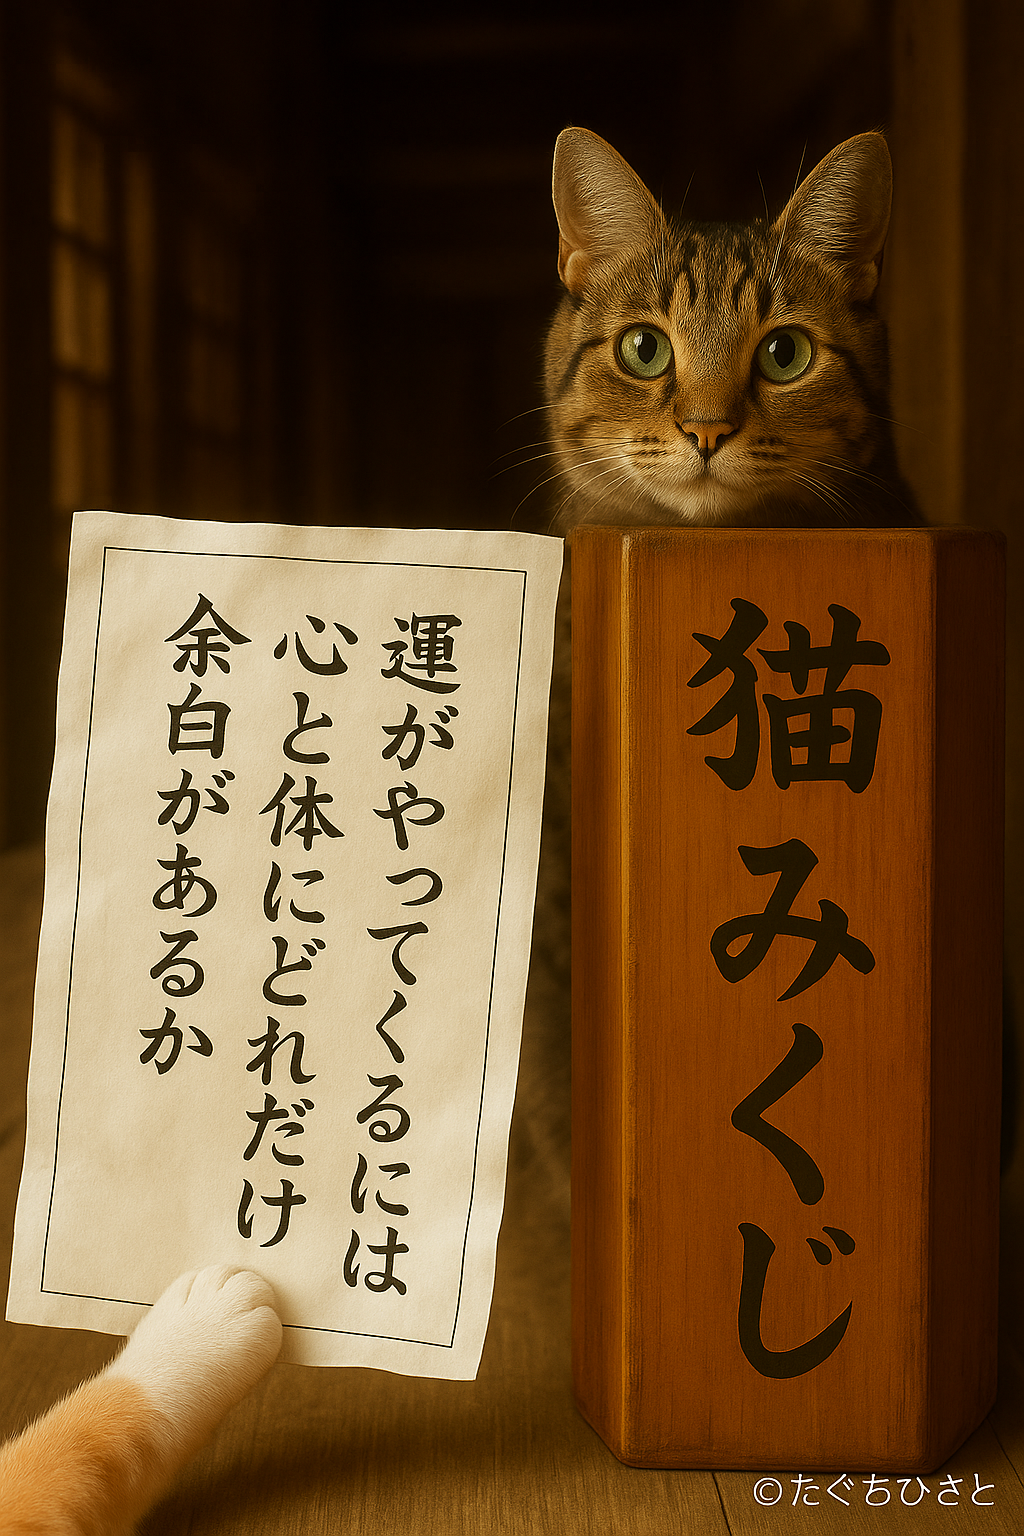 運がやってくるには
心と体にどれだけ
余白があるか
猫みくじ
©たぐちひさと